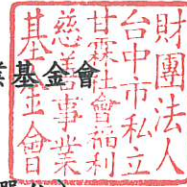 財團法人
台中市私立
甘霖社會福利
慈善事業
基金會
業基金會